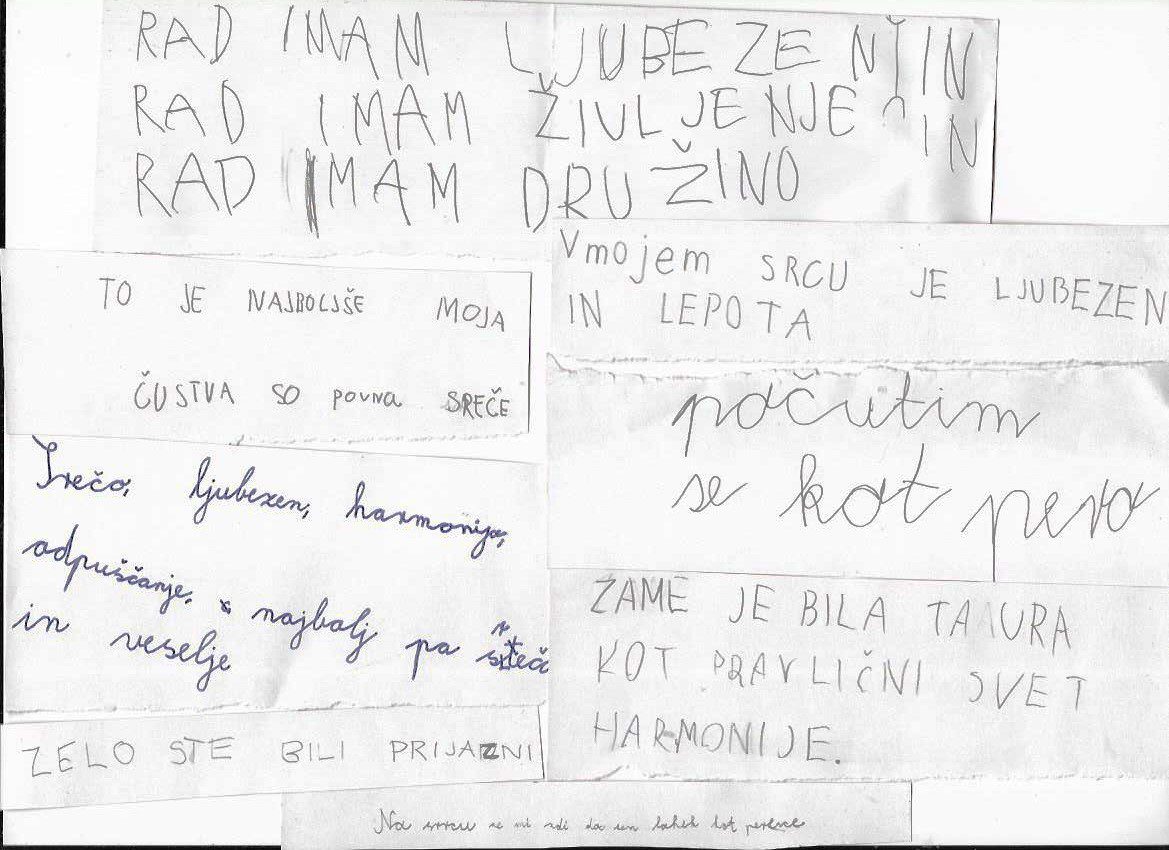 RAD IMAM LJUBEZENŇ IN
RAD IMAM ŽIVLJENJE IN
RAD IMAM DRUŽINO
TO JE NAJBOLJŠE MOJA
ČUSTVA SO POVNA SREČE
V mojem SRCU JE LJUBEZEN
IN LEPOTA
počutim
se kot pero
Srečo, ljubezen, harmonijo,
odpuščanje, najbolj pa
in veselje
ZAME JE BILA TA URA
KOT PRAVLIČNI SVET
HARMONIJE.
ZELO STE BILI PRIJAZNI
Na srcu se mi zdi da sem lahek kot perence